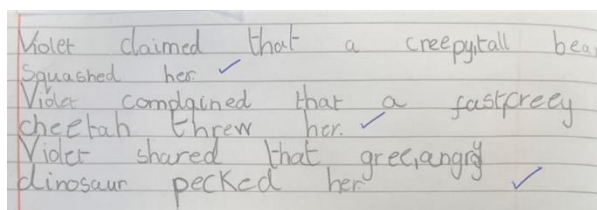 Violet claimed that a creepy,tall bea
squashed her.
Violet complained that a fast,creey
cheetah threw her.
Violet shared that gree,angry
dinosaur pecked her